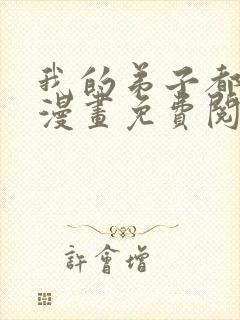 我的弟子都
漫畫免費閱
許會增